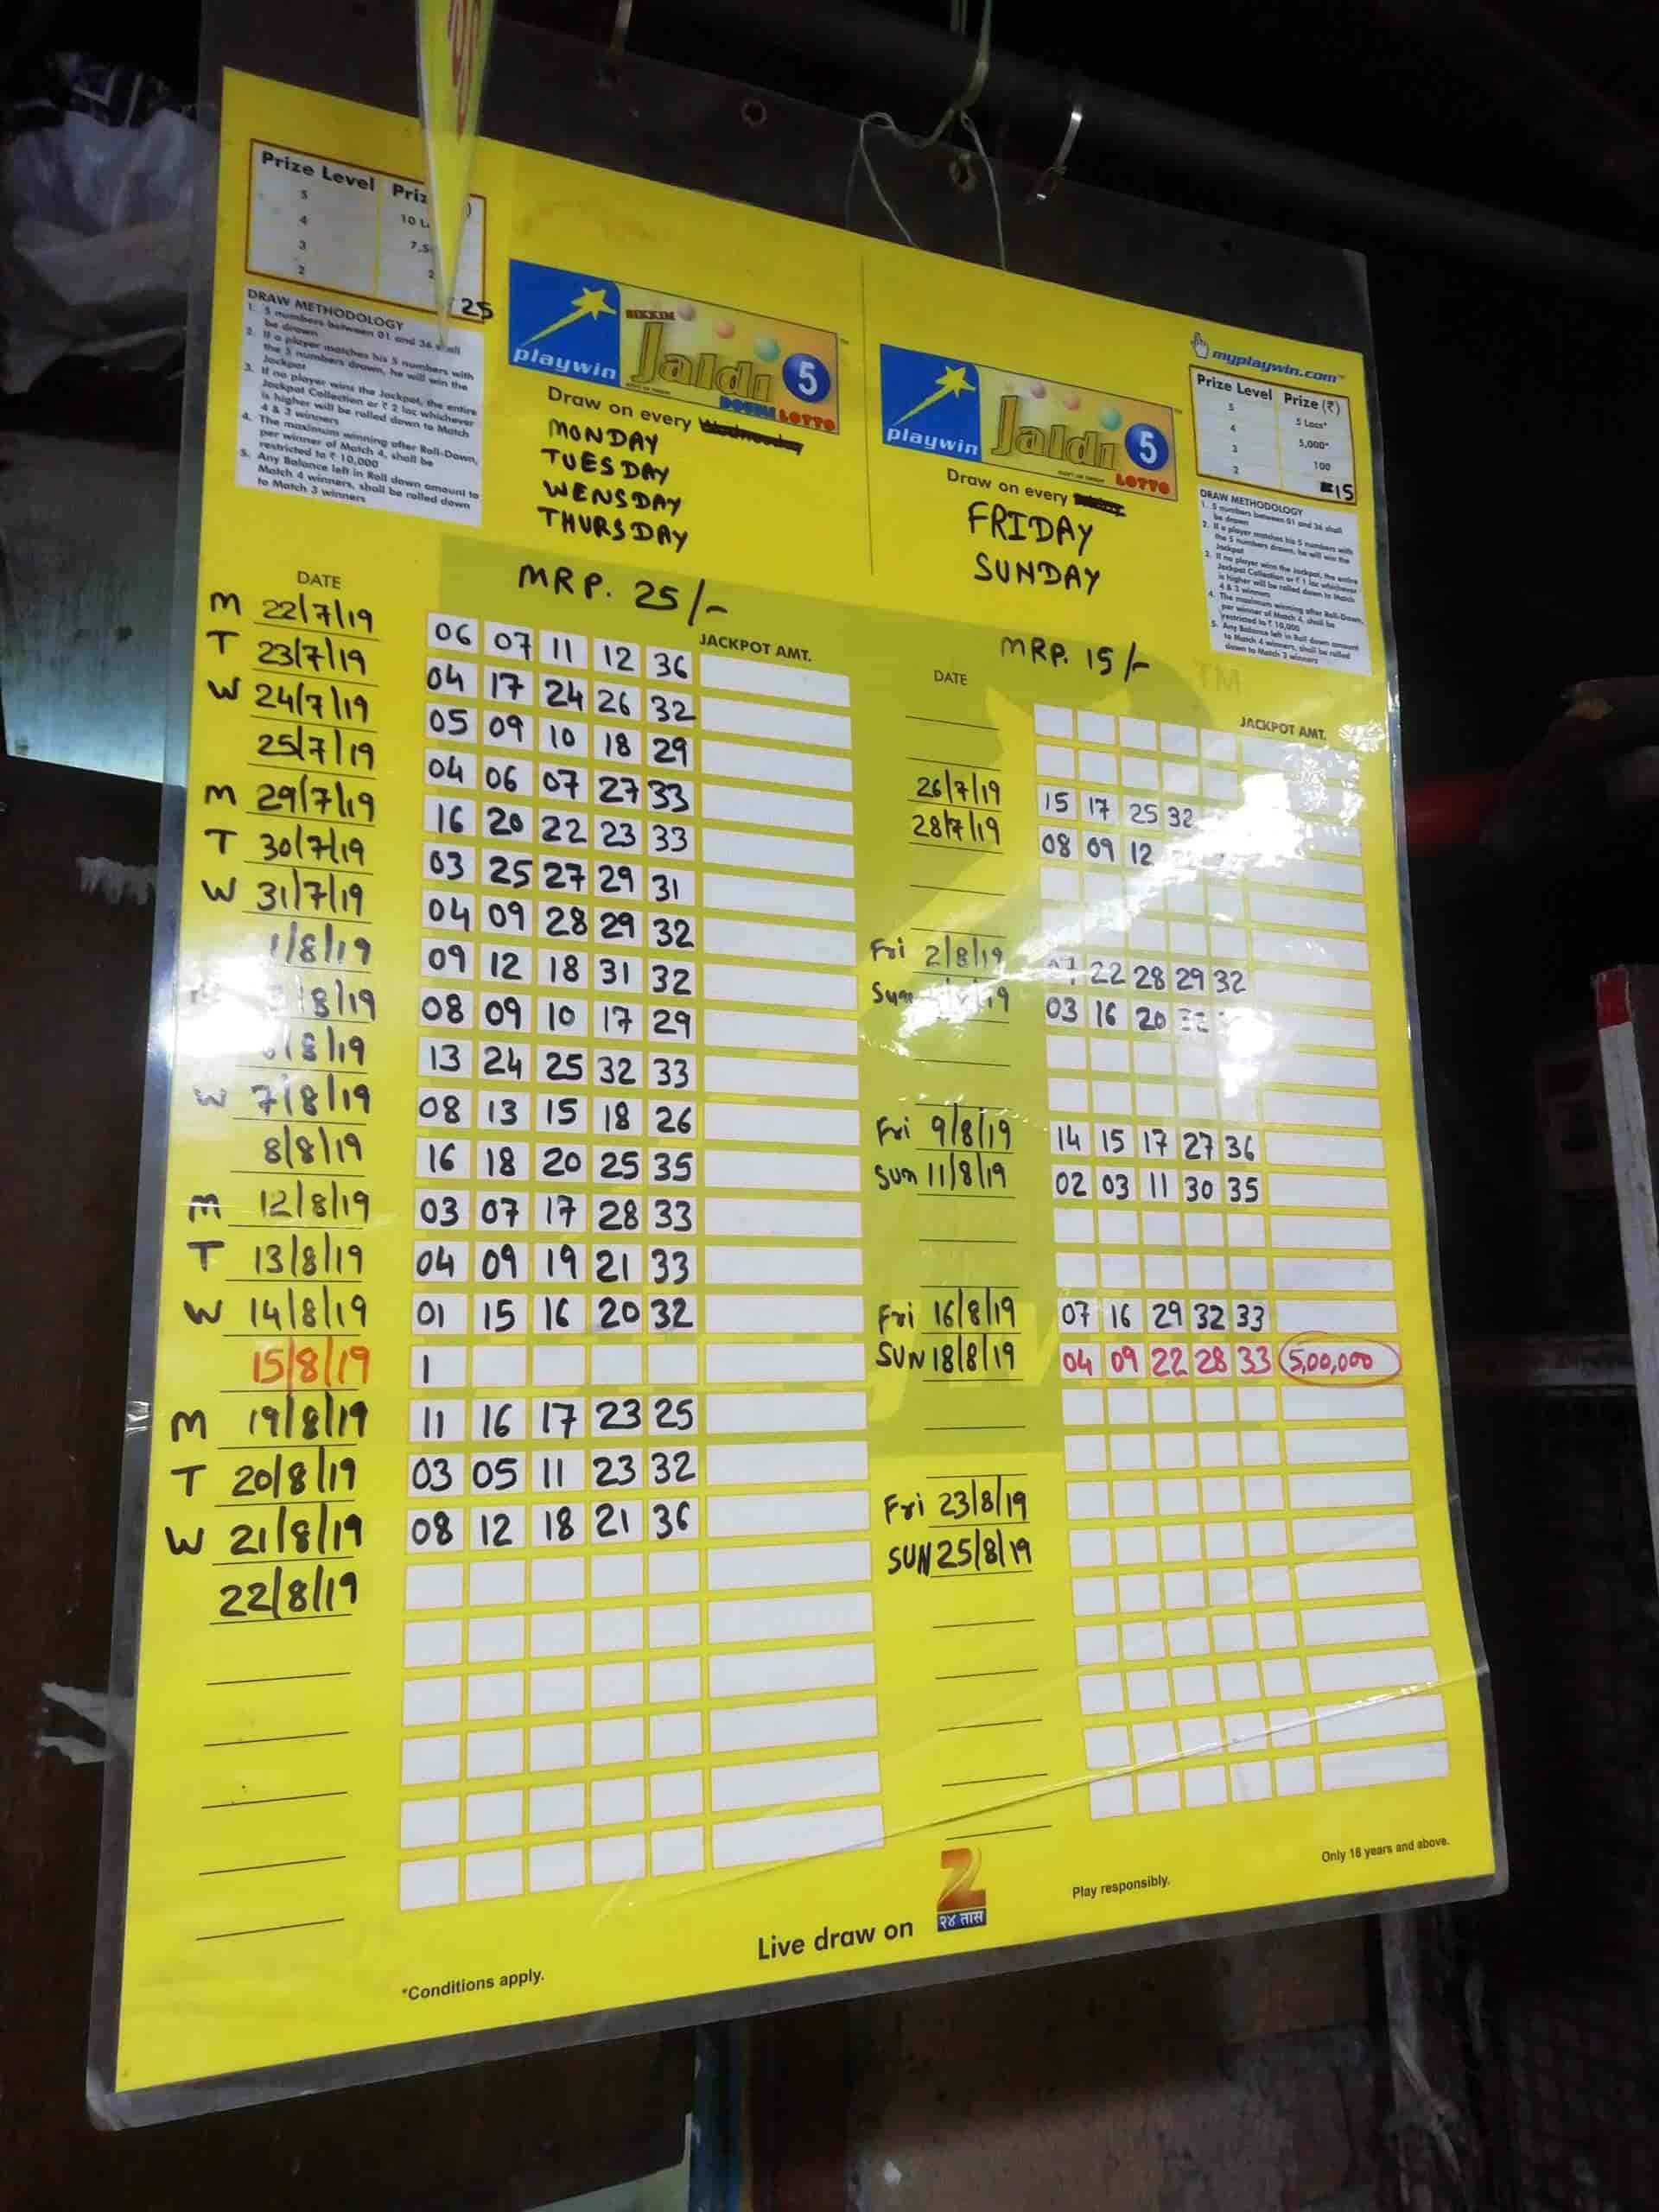 Prize Level
5
4
3
2
10
7.5
2
25
DRAW METHODOLOGY
1. 5 numbers between 01 and 36 shall
be drawn
2. If a player matches his 5 numbers with
the 5 numbers drawn, he will win the
Jackpot
3. If no player wins the Jackpot, the entire
Jackpot Collection or ₹ 2 lac whichever
is higher will be rolled down to Match
4 & 3 winners
4. The maximum winning after Roll-Down,
per winner of Match 4, shall be
restricted to ₹ 10,000
5. Any Balance left in Roll down amount to
Match 4 winners, shall be rolled down
to Match 3 winners
playwin
SIKKIM
Jaldi 5
DOUBLE LOTTO
Draw on every Wednesday
MONDAY
TUESDAY
WENSDAY
THURSDAY
MRP. 25/-
DATE
JACKPOT AMT.
M 22/7/19 06 07 11 12 36
T 23/7/19 04 17 24 26 32
W 24/7/19 05 09 10 18 29
25/7/19 04 06 07 27 33
M 29/7/19 16 20 22 23 33
T 30/7/19 03 25 27 29 31
W 31/7/19 04 09 28 29 32
1/8/19 09 12 18 31 32
/8/19 08 09 10 17 29
/8/19 13 24 25 32 33
W 7/8/19 08 13 15 18 26
8/8/19 16 18 20 25 35
M 12/8/19 03 07 17 28 33
T 13/8/19 04 09 19 21 33
W 14/8/19 01 15 16 20 32
15/8/19 1
M 19/8/19 11 16 17 23 25
T 20/8/19 03 05 11 23 32
W 21/8/19 08 12 18 21 36
22/8/19
myplaywin.com™
playwin
Jaldi 5
LOTTO
Draw on every
FRIDAY
SUNDAY
Prize Level Prize (₹)
5 5 Lacs*
4 5,000*
3 100
2 15
DRAW METHODOLOGY
1. 5 numbers between 01 and 36 shall
be drawn
2. If a player matches his 5 numbers with
the 5 numbers drawn, he will win the
Jackpot
3. If no player wins the Jackpot, the entire
Jackpot Collection or ₹ 1 lac whichever
is higher will be rolled down to Match
4 & 3 winners
4. The maximum winning after Roll-Down,
per winner of Match 4, shall be
restricted to ₹ 10,000
5. Any Balance left in Roll down amount
to Match 4 winners, shall be rolled
down to Match 3 winners
MRP. 15/-
DATE
JACKPOT AMT.
26/7/19 15 17 25 32
28/7/19 08 09 12
Fri 2/8/19 22 28 29 32
Sun /19 03 16 20
Fri 9/8/19 14 15 17 27 36
Sun 11/8/19 02 03 11 30 35
Fri 16/8/19 07 16 29 32 33
SUN 18/8/19 04 09 22 28 33 5,00,000
Fri 23/8/19
SUN 25/8/19
Live draw on
Z
२४ तास
Play responsibly.
Only 18 years and above.
*Conditions apply.